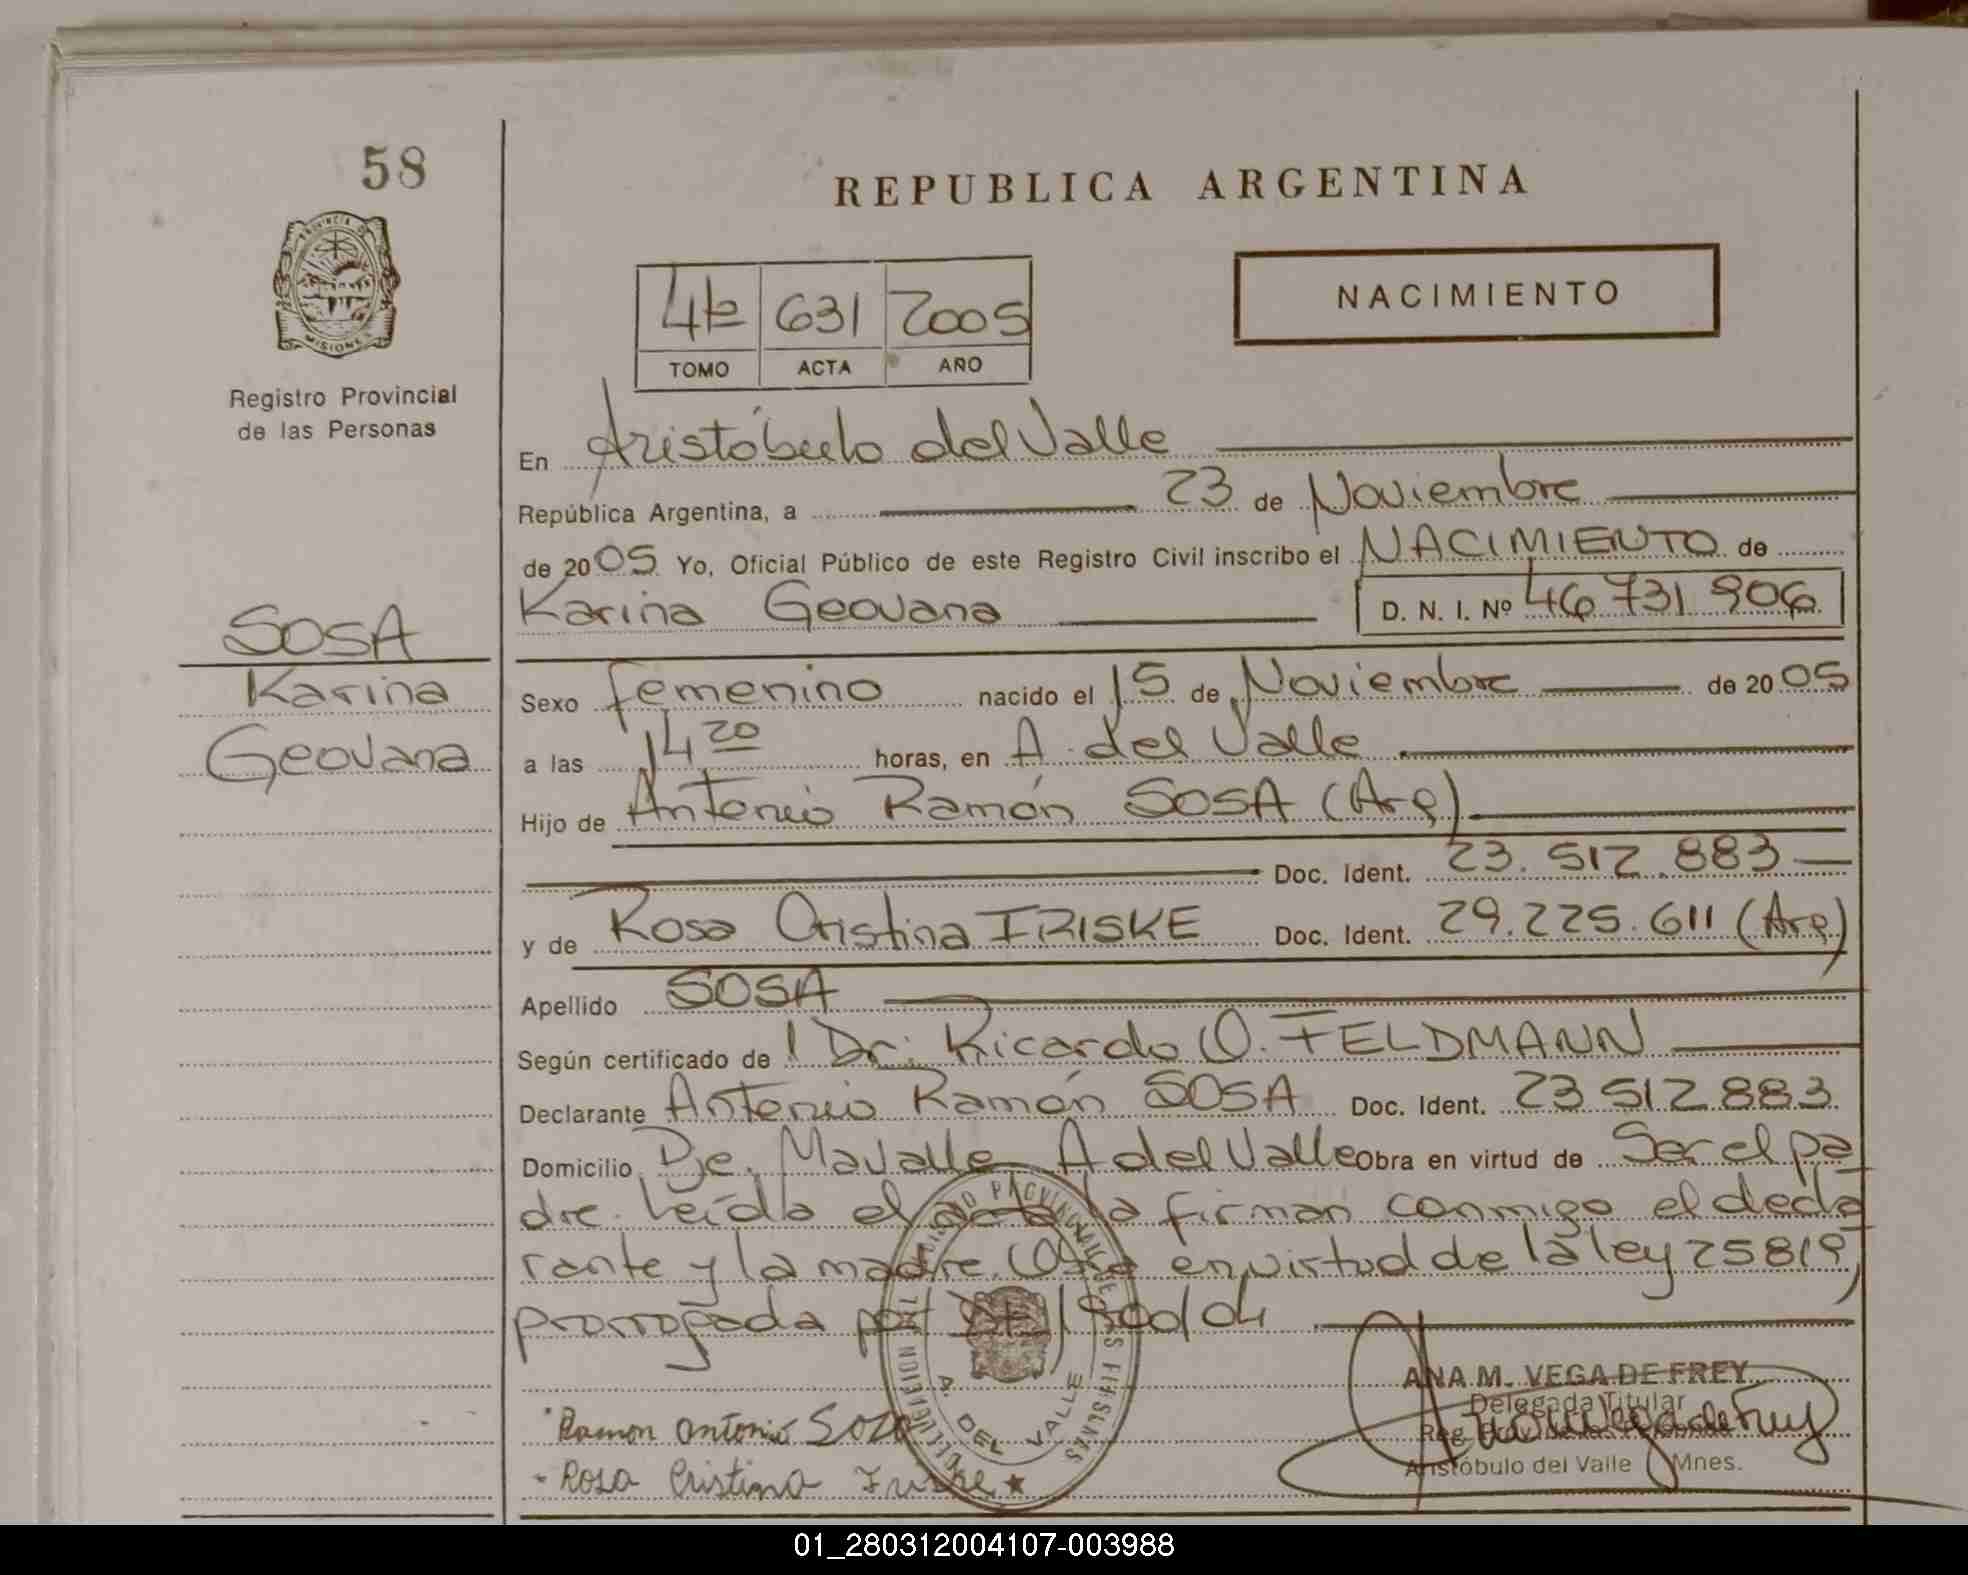 58
REPUBLICA ARGENTINA
PROVINCIA DE
MISIONES
Registro Provincial
de las Personas
4to 631 2005
TOMO ACTA AÑO
NACIMIENTO
En Aristóbulo del Valle
República Argentina, a 23 de Noviembre
de 2005 Yo, Oficial Público de este Registro Civil inscribo el NACIMIENTO de
Karina Geovana D. N. I. Nº 46 731 906
SOSA
Karina
Geovana
Sexo femenino nacido el 15 de Noviembre de 2005
a las 14 20 horas, en A. del Valle
Hijo de Antonio Ramón SOSA (Arg)
Doc. Ident. 23.512.883
y de Rosa Cristina IRISKE Doc. Ident. 29.225.611 (Arg)
Apellido SOSA
Según certificado de Dr. Ricardo O. FELDMANN
Declarante Antonio Ramón SOSA Doc. Ident. 23 512.883
Domicilio Pje. Mavalle A del Valle Obra en virtud de Ser el pa
dre. Leída el acta la firman conmigo el decla
rante y la madre. en virtud de la ley 25819,
prorrogada por /04
A. DEL VALLE
ANA M. VEGA DE FREY
Delegada Titular
Aristóbulo del Valle Mnes.
Ramon Antonio Soza
Rosa Cristina
01_280312004107-003988